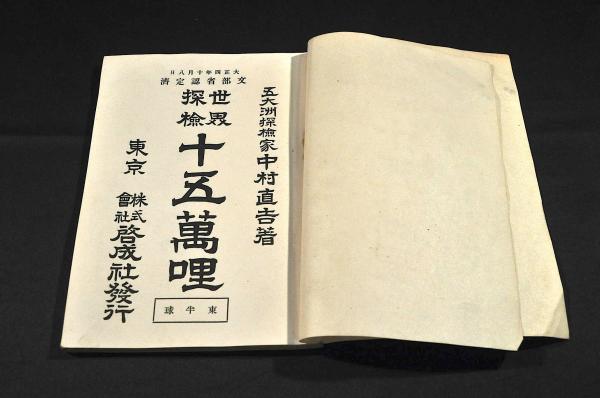 大正四年十月八日
文部省認定濟
五大洲探檢家中村直吉著
世界探檢十五萬哩
東半球
東京
株式會社啓成社發行